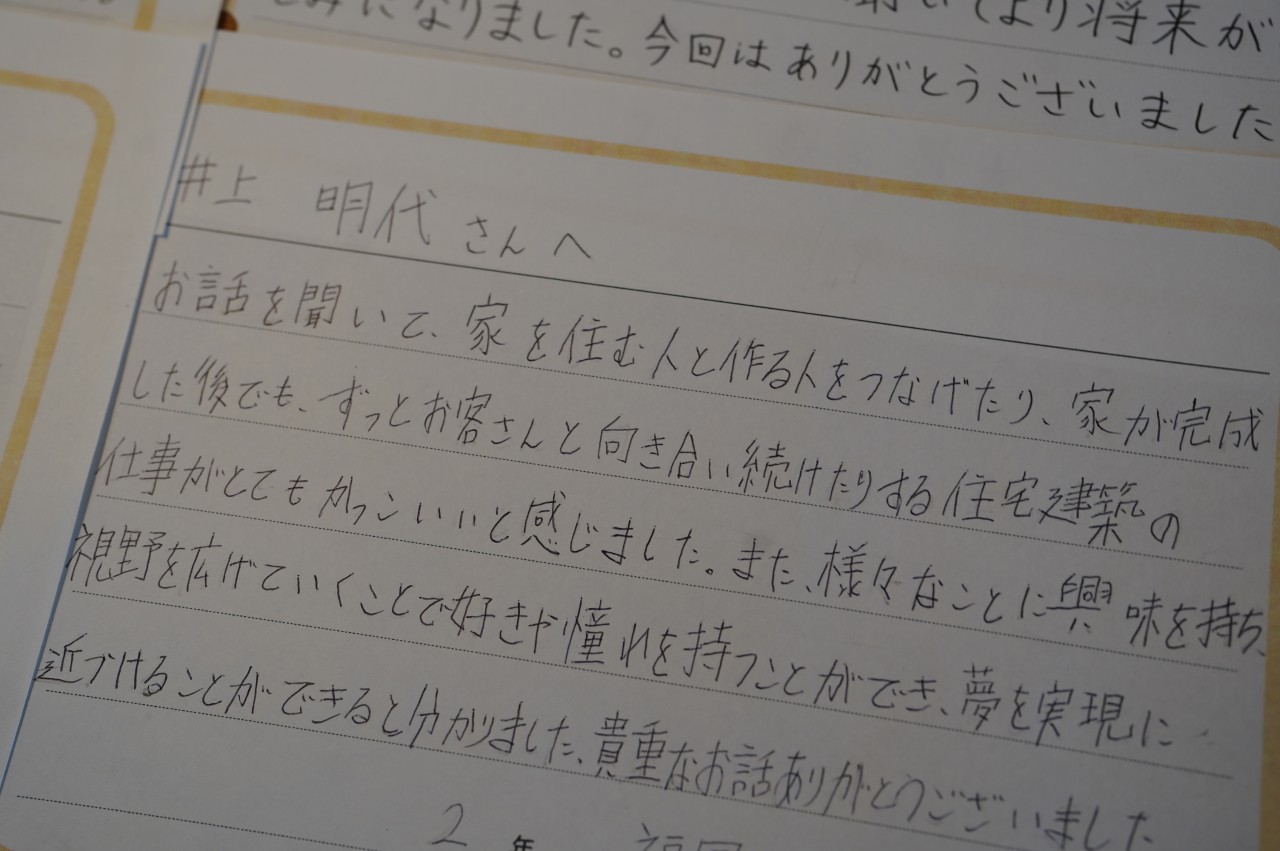 て より将来が
みになりました。今回はありがとうございました
井上 明代 さんへ
お話を聞いて、家を住む人と作る人をつなげたり、家が完成
した後でも、ずっとお客さんと向き合い続けたりする住宅建築の
仕事がとてもかっこいいと感じました。また、様々なことに興味を持ち、
視野を広げていくことで好きや憧れを持つことができ、夢を実現に
近づけることができると分かりました、貴重なお話ありがとうございました
2 年